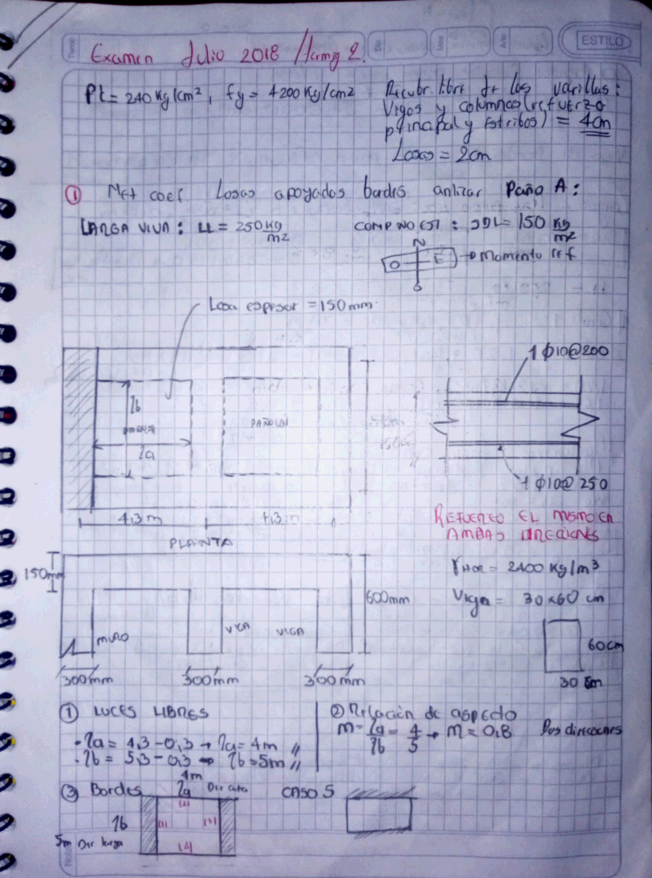 ESTILO
Examen Julio 2018 / Hormig 2.
f'c = 240 kg/cm², fy = 4200 kg/cm2
Recubr. libre de las varillas:
Vigas y columnas (refuerzo
principal y estribos) = 4cm
Losas = 2cm
① Met coef Losas apoyadas bordes anlizar Paño A:
CARGA VIVA: LL = 250 kg/m2
COMP NO EST: SDL = 150 kg/m²
N
O E → Momento ref
S
Losa espesor = 150 mm
1 ϕ10@200
lb
la
1 ϕ10@250
4,3 m 4,3 m
PLANTA
REFUERZO EL MISMO EN
AMBAS DIRECCIONES
150mm
γHOR = 2400 kg/m³
600mm
Viga = 30x60 cm
MURO
VIGA
VIGA
60cm
30 cm
300mm 300mm 300mm
① LUCES LIBRES
· la = 4,3 - 0,3 → la = 4m //
· lb = 5,3 - 0,3 → lb = 5m //
② Relación de aspecto
m = la/lb = 4/5 → m = 0,8 Dos direcciones
③ Bordes
4m
la Dir corta
CASO 5
lb
5m Dir larga
(1)
(2)
(3)
(4)